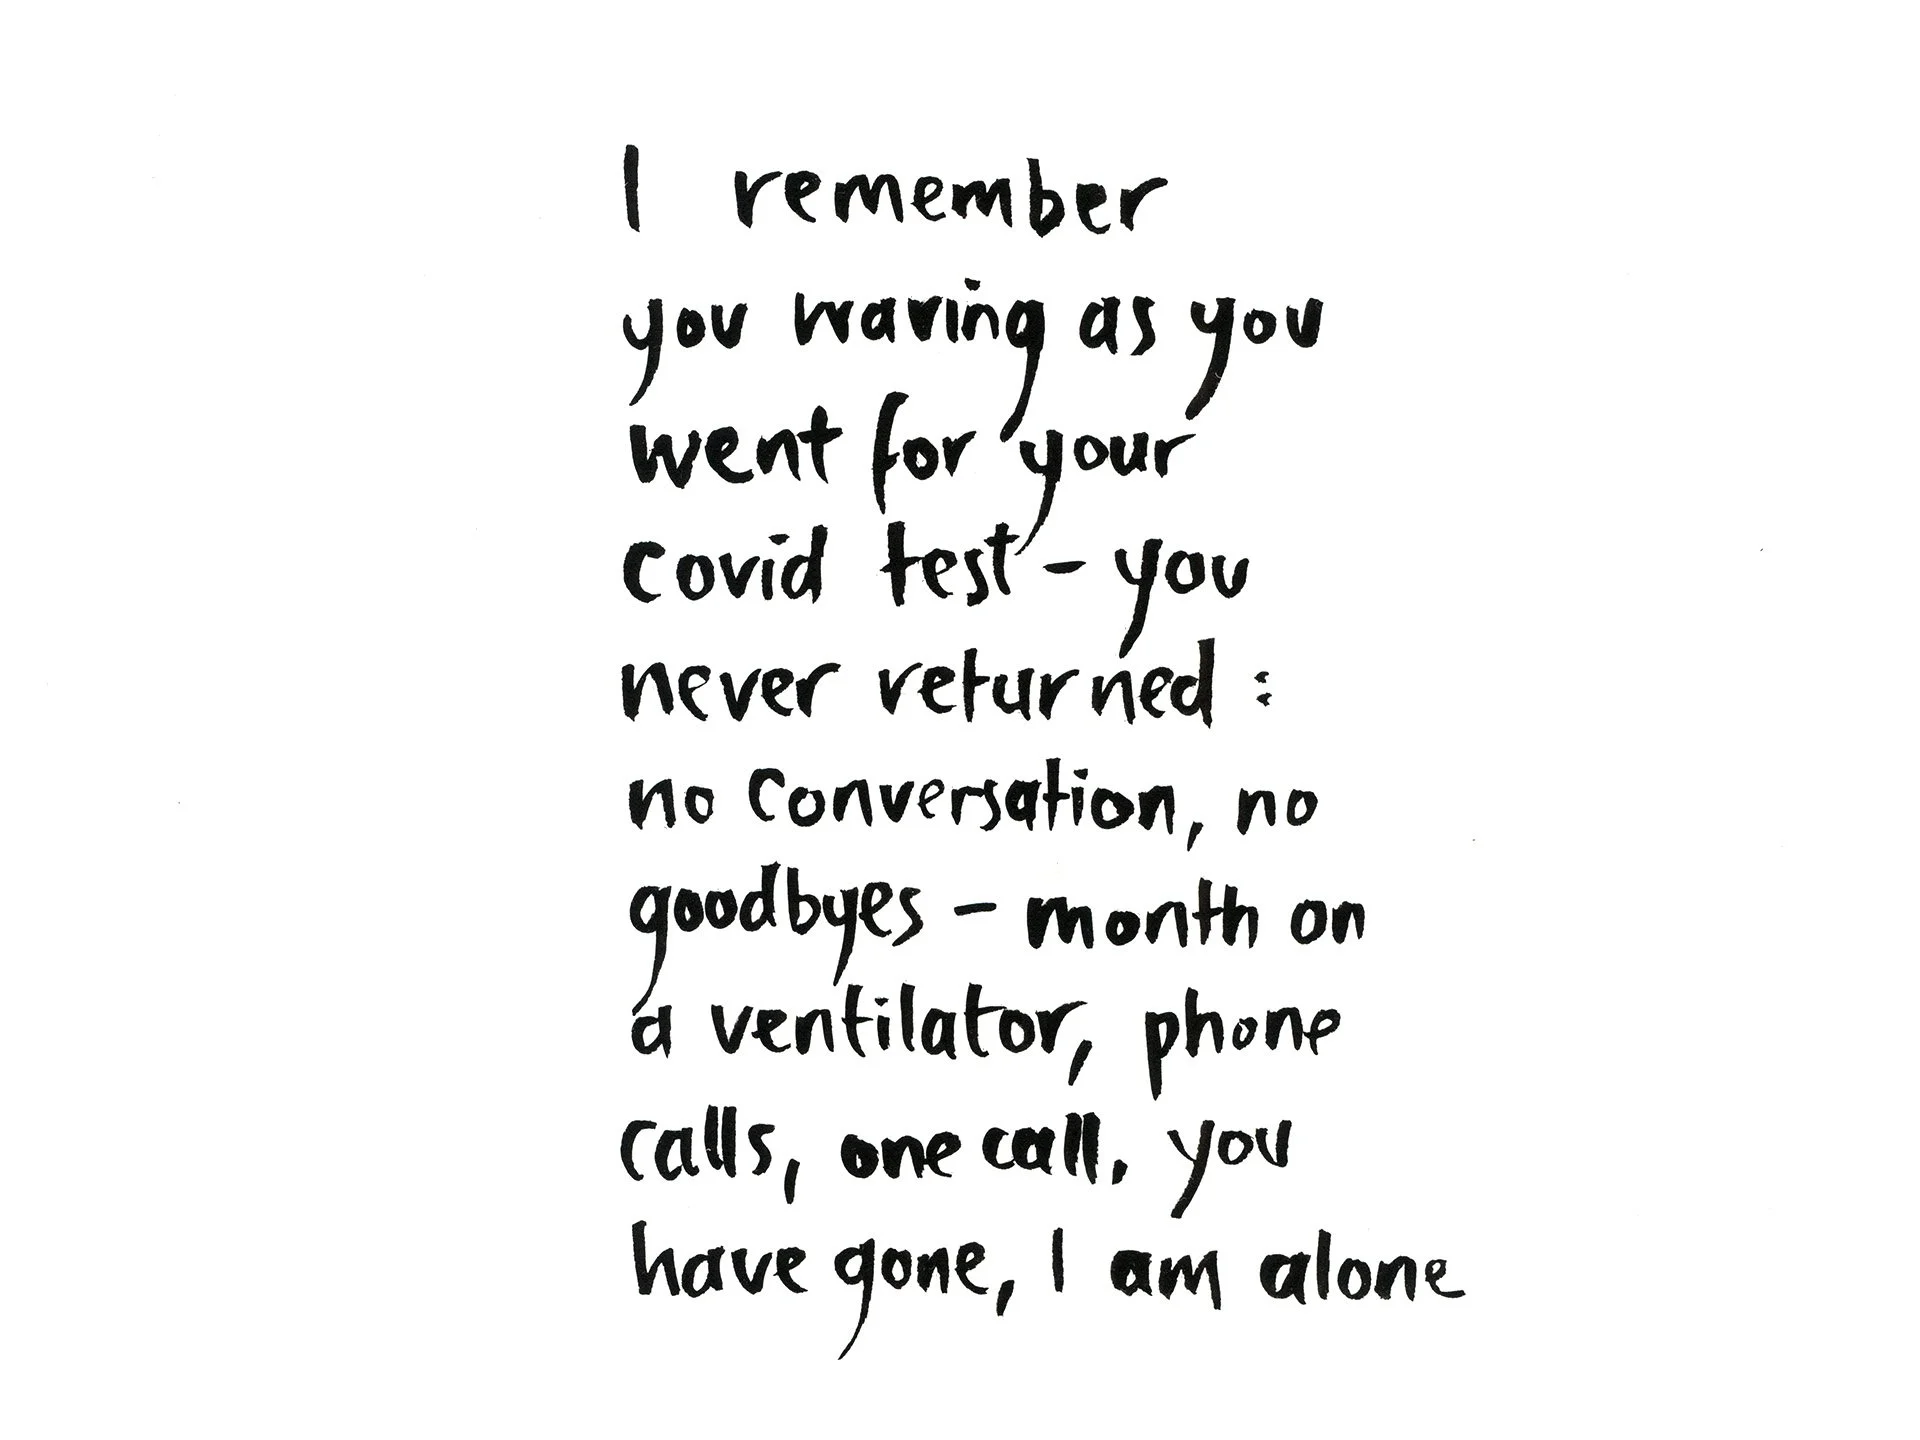 I remember
you waving as you
went for your
covid test - you
never returned :
no conversation, no
goodbyes - month on
a ventilator, phone
calls, one call. you
have gone, I am alone